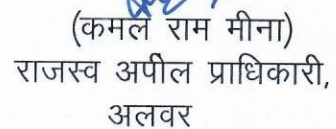 (कमल राम मीना)
राजस्व अपील प्राधिकारी,
अलवर